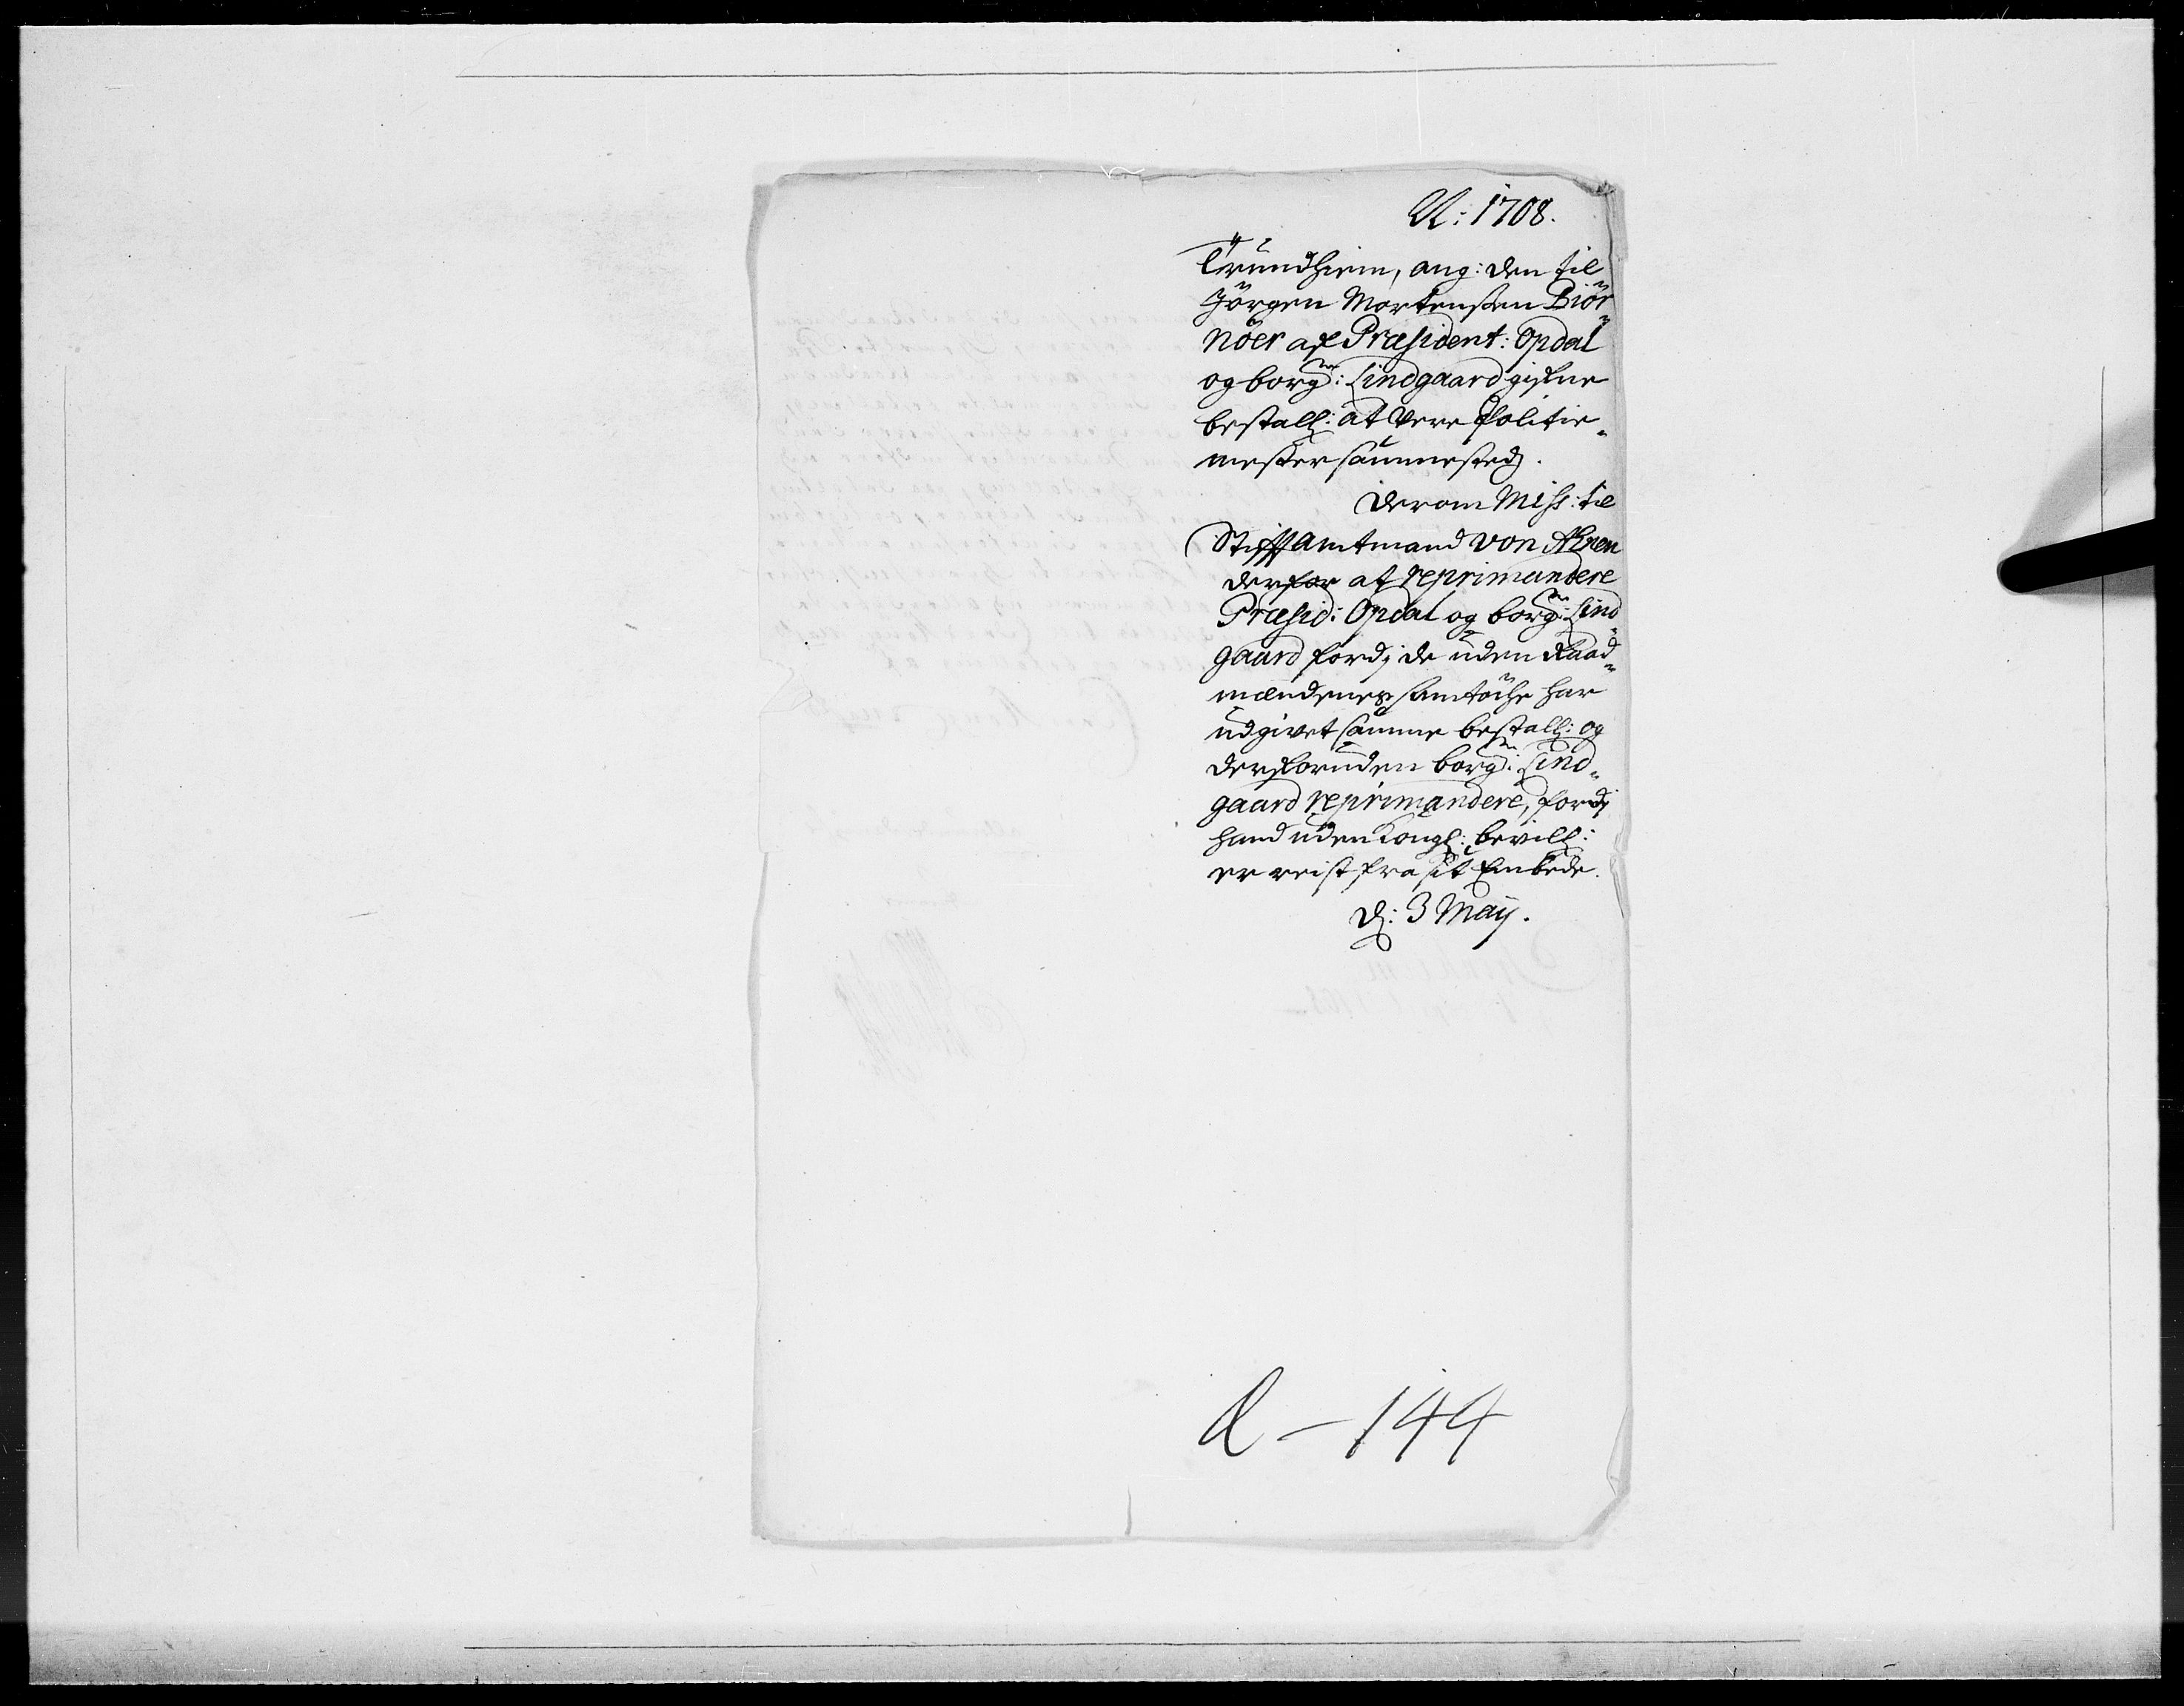 A: 1708.
Trundhiem, ang: den til
Jörgen Mortensen Biör„
nöer af Præsident: Opdal
og borgm: Lindgaard gifne
bestall: at vere Politie„
mester sammested.
Derom Miss: til
Stifftamtmand von Ahnen
derfor at reprimandere
Præsid: Opdal og borgm: Lind„
gaard fordj de uden Raad„
mændenes samtöche har
udgivet samme bestall: og
derforuden borgm: Lind„
gaard reprimandere, fordj
hand uden Kongl: bevill:
er reist fra sit Embede.
d: 3 Maij.
R – 144